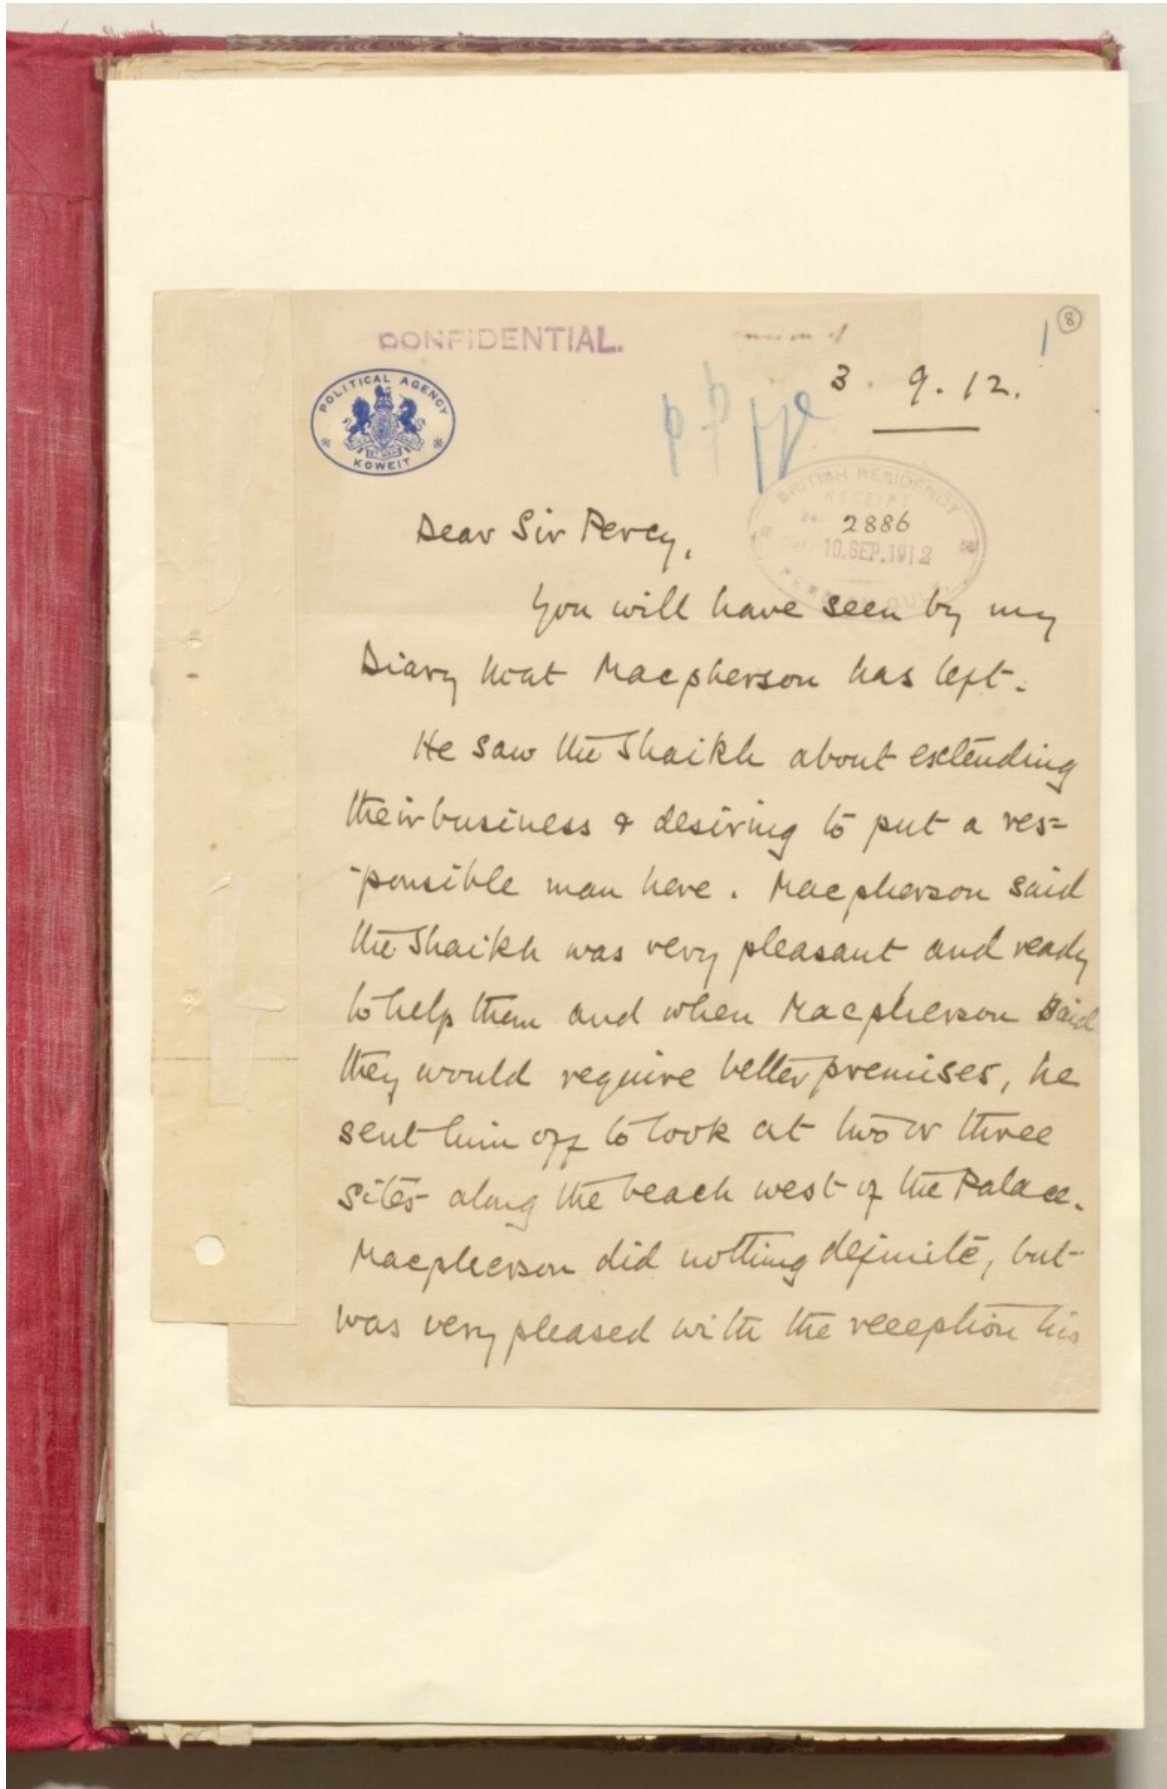 8
1
CONFIDENTIAL.
3. 9. 12.
POLITICAL AGENCY
KOWEIT
BRITISH RESIDENCY
RECEIPT
2886
10.SEP.1912
Dear Sir Percy,
You will have seen by my
Diary that Macpherson has left.
He saw the Shaikh about extending
their business & desiring to put a res=
-ponsible man here. Macpherson said
the Shaikh was very pleasant and ready
to help them and when Macpherson said
they would require better premises, he
sent him off to look at two or three
sites along the beach west of the Palace.
Macpherson did nothing definite, but
was very pleased with the reception his